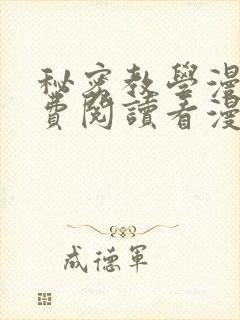 秘密教學漫
費閱讀看漫
成德軍